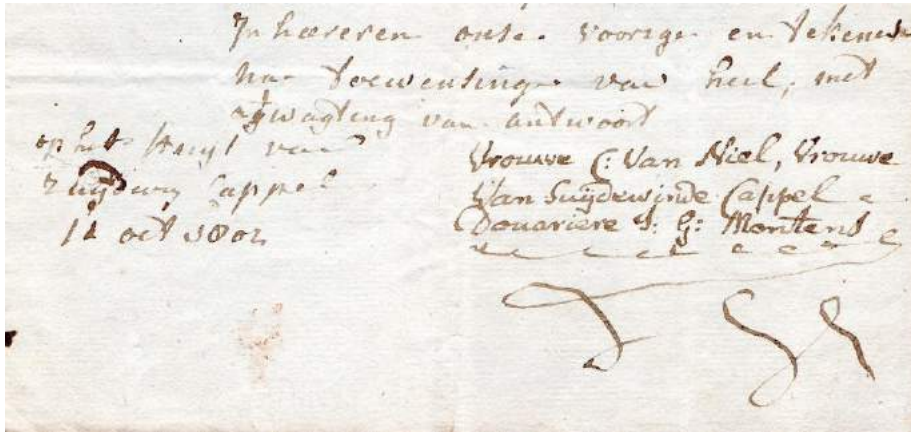 Inhæreren onse voorige en tekenen
na toewensinge van heil, met
afwagting van antwoort
op het Huys van
Zuydwy Cappel
12 oct 1802
Vrouwe C: Van Niel, Vrouwe
Van Suijdewinde Cappel
Douariere I: G: Montens